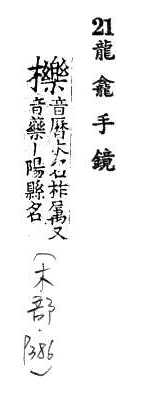 21龍龕手鏡
櫟音曆木名柞屬又
音藥ー陽縣名
(木部·P386)